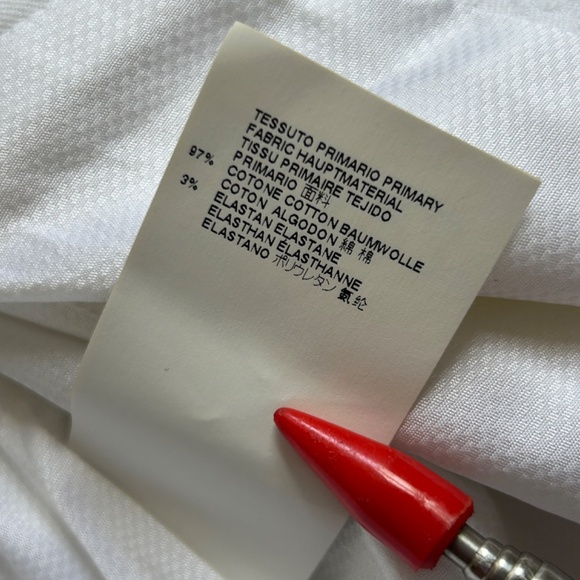 TESSUTO PRIMARIO PRIMARY
FABRIC HAUPTMATERIAL
TISSU PRIMAIRE TEJIDO
PRIMARIO 面料
97% COTONE COTTON BAUMWOLLE
COTON ALGODON 綿 棉
3% ELASTAN ELASTANE
ELASTHAN ÉLASTHANNE
ELASTANO ポリウレタン 氨纶